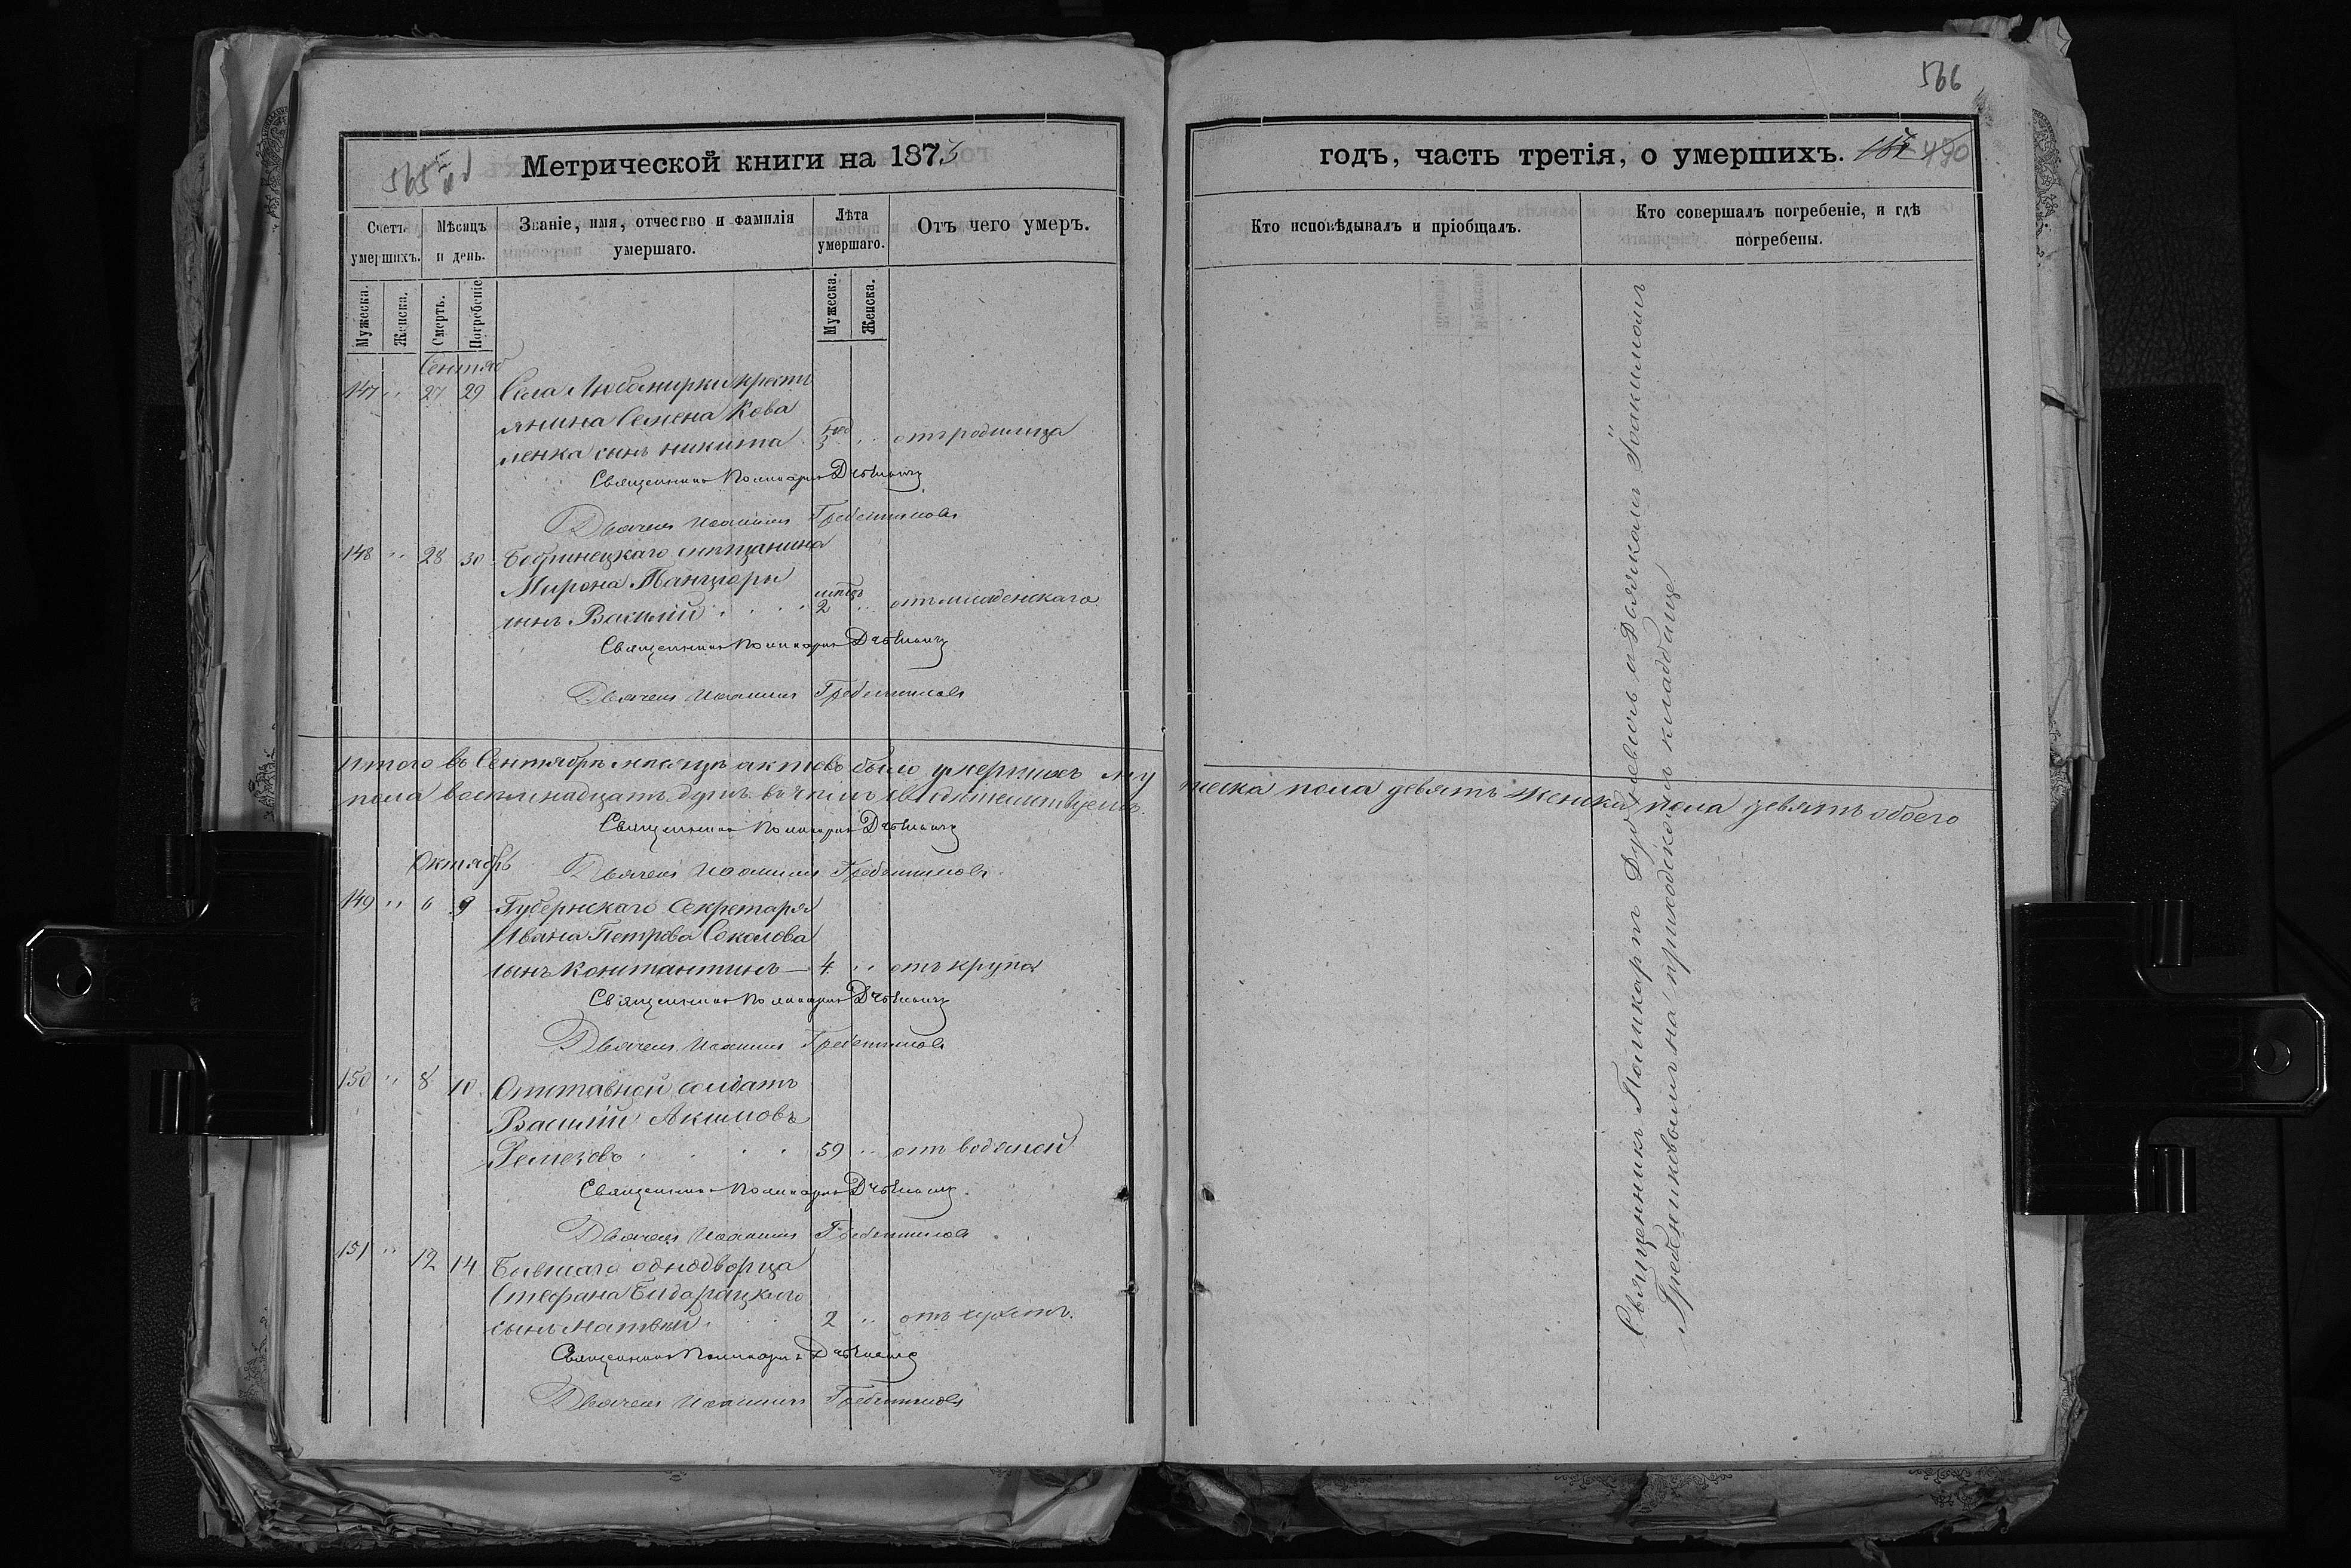 566
565
Метрической книги на 1873
годъ, часть третія, о умершихъ.
490
Счетъ умершихъ.
Мѣсяцъ и день.
Званіе, имя, отчество и фамилія умершаго.
Лѣта умершаго.
Отъ чего умеръ.
Кто исповѣдывалъ и пріобщалъ.
Кто совершалъ погребеніе, и гдѣ погребены.
Мужеска.
Женска.
Смерть.
Погребеніе
Мужеска.
Женска.
Сентяб
147 " 27 29 Села крестъ
янина Семена Кова
ленка сынъ никита 3 " отъ родимца
Священникъ Поликарпъ
Дьячекъ Иоакимъ Гребенниковъ
148 " 28 30 Бобринецкаго мѣщанина
Мирона
сынъ Василій 2 " отъ младенскаго
Священникъ Поликарпъ
Дьячекъ Иоакимъ Гребенниковъ
Итого въ Сентябрѣ мѣсяцѣ актовъ было умершихъ му
жеска пола девять женска пола девять обоего
пола восемнадцать душъ въ чемъ свидѣтельствуемъ.
Священникъ Поликарпъ
Октябрь
Дьячекъ Иоакимъ Гребенниковъ
149 " 6 9 Губернскаго Секретаря
Ивана Петрова Соколова
сынъ Константинъ — 4 " отъ крупа
Священникъ Поликарпъ
Дьячекъ Иоакимъ Гребенниковъ
150 " 8 10 Отставной солдатъ
Василій Акимовъ
Ремезовъ 59 " отъ водяной
Священникъ Поликарпъ
Дьячекъ Иоакимъ Гребенниковъ
151 " 12 14 Бывшаго однодворца
Стефана
сынъ Матвѣй 2 " отъ
Священникъ Поликарпъ
Дьячекъ Иоакимъ Гребенниковъ
Священникъ Поликарпъ съ Дьячкомъ Іоакимомъ
Гребенниковымъ на приходскомъ кладбище